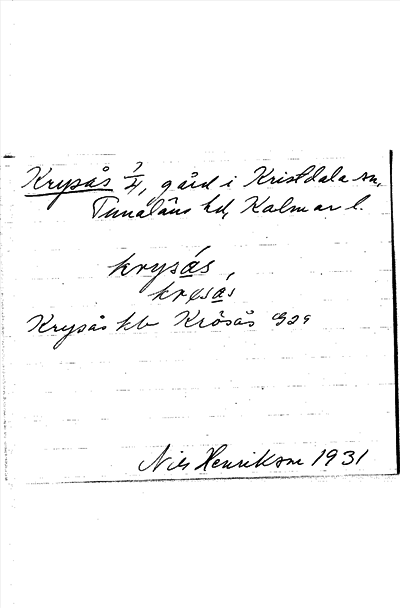 Krysås 3/4, gård i Kristdala sn,
Tunaläns hd, Kalmar l.
krysás
krɵsás
Krysås kb Krösås
Nils Henrikson 1931